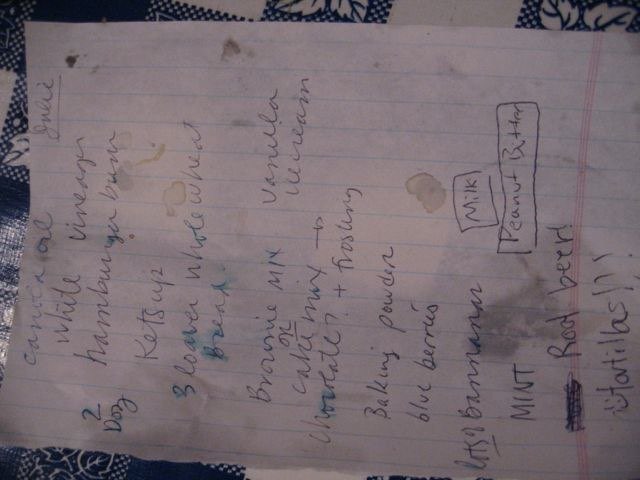 Julie
canola oil
white vinegar
2 Doz hamburger buns
Ketsup
3 loaves whole wheat
Bread
Brownie MIX vanilla
or icecream
cake mix →
chocolate? + frosting
Baking powder
blue berries
lots of Bannanas
Milk
MINT
Peanut Butter
Root beer!
tortillas!!!